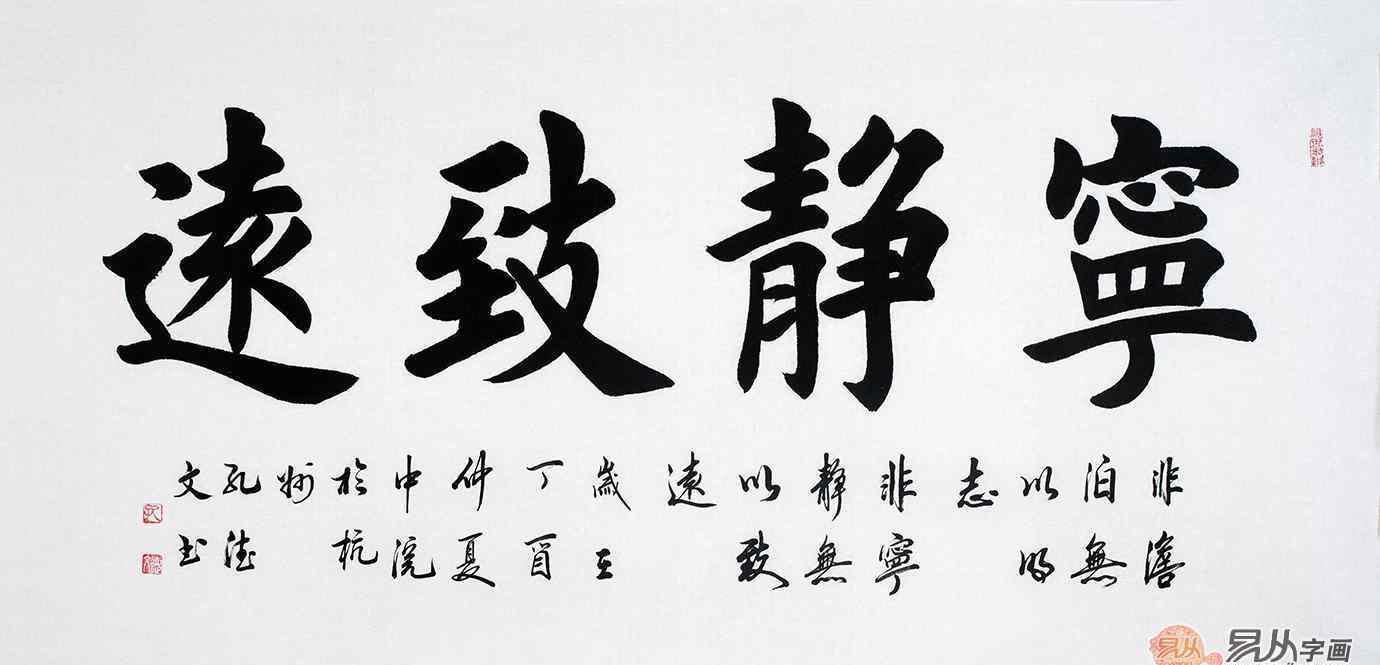 寧靜致遠
非澹
泊無
以明
志
非寧
靜無
以致
遠
歲在
丁酉
仲夏
中浣
於杭
州
孔德
文书
易从
易从字画